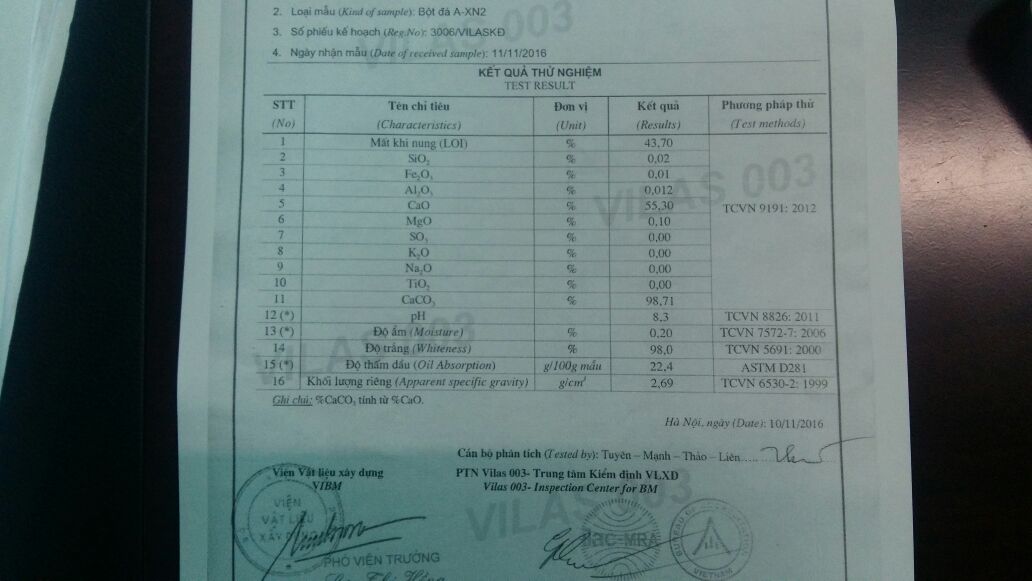 2. Loại mẫu (Kind of sample): Bột đá A-XN2
3. Số phiếu kế hoạch (Reg.No): 3006/VILASKĐ
4. Ngày nhận mẫu (Date of received sample): 11/11/2016
KẾT QUẢ THỬ NGHIỆM
TEST RESULT
STT Tên chỉ tiêu Đơn vị Kết quả Phương pháp thử
(No) (Characteristics) (Unit) (Results) (Test methods)
1 Mất khi nung (LOI) % 43,70
2 SiO₂ % 0,02
3 Fe₂O₃ % 0,01
4 Al₂O₃ % 0,012
5 CaO % 55,30 TCVN 9191: 2012
6 MgO % 0,10
7 SO₃ % 0,00
8 K₂O % 0,00
9 Na₂O % 0,00
10 TiO₂ % 0,00
11 CaCO₃ % 98,71
12 (*) pH 8,3 TCVN 8826: 2011
13 (*) Độ ẩm (Moisture) % 0,20 TCVN 7572-7: 2006
14 Độ trắng (Whiteness) % 98,0 TCVN 5691: 2000
15 (*) Độ thấm dầu (Oil Absorption) g/100g mẫu 22,4 ASTM D281
16 Khối lượng riêng (Apparent specific gravity) g/cm³ 2,69 TCVN 6530-2: 1999
Ghi chú: %CaCO₃ tính từ %CaO.
Hà Nội, ngày (Date): 10/11/2016
Cán bộ phân tích (Tested by): Tuyên – Mạnh – Thảo – Liên.....
Viện Vật liệu xây dựng PTN Vilas 003- Trung tâm Kiểm định VLXD
VIBM Vilas 003- Inspection Center for BM
VILAS 003
VILAS 003
VIỆN
VẬT LIỆU
XÂY
ILAC-MRA
VIETNAM
PHÓ VIỆN TRƯỞNG